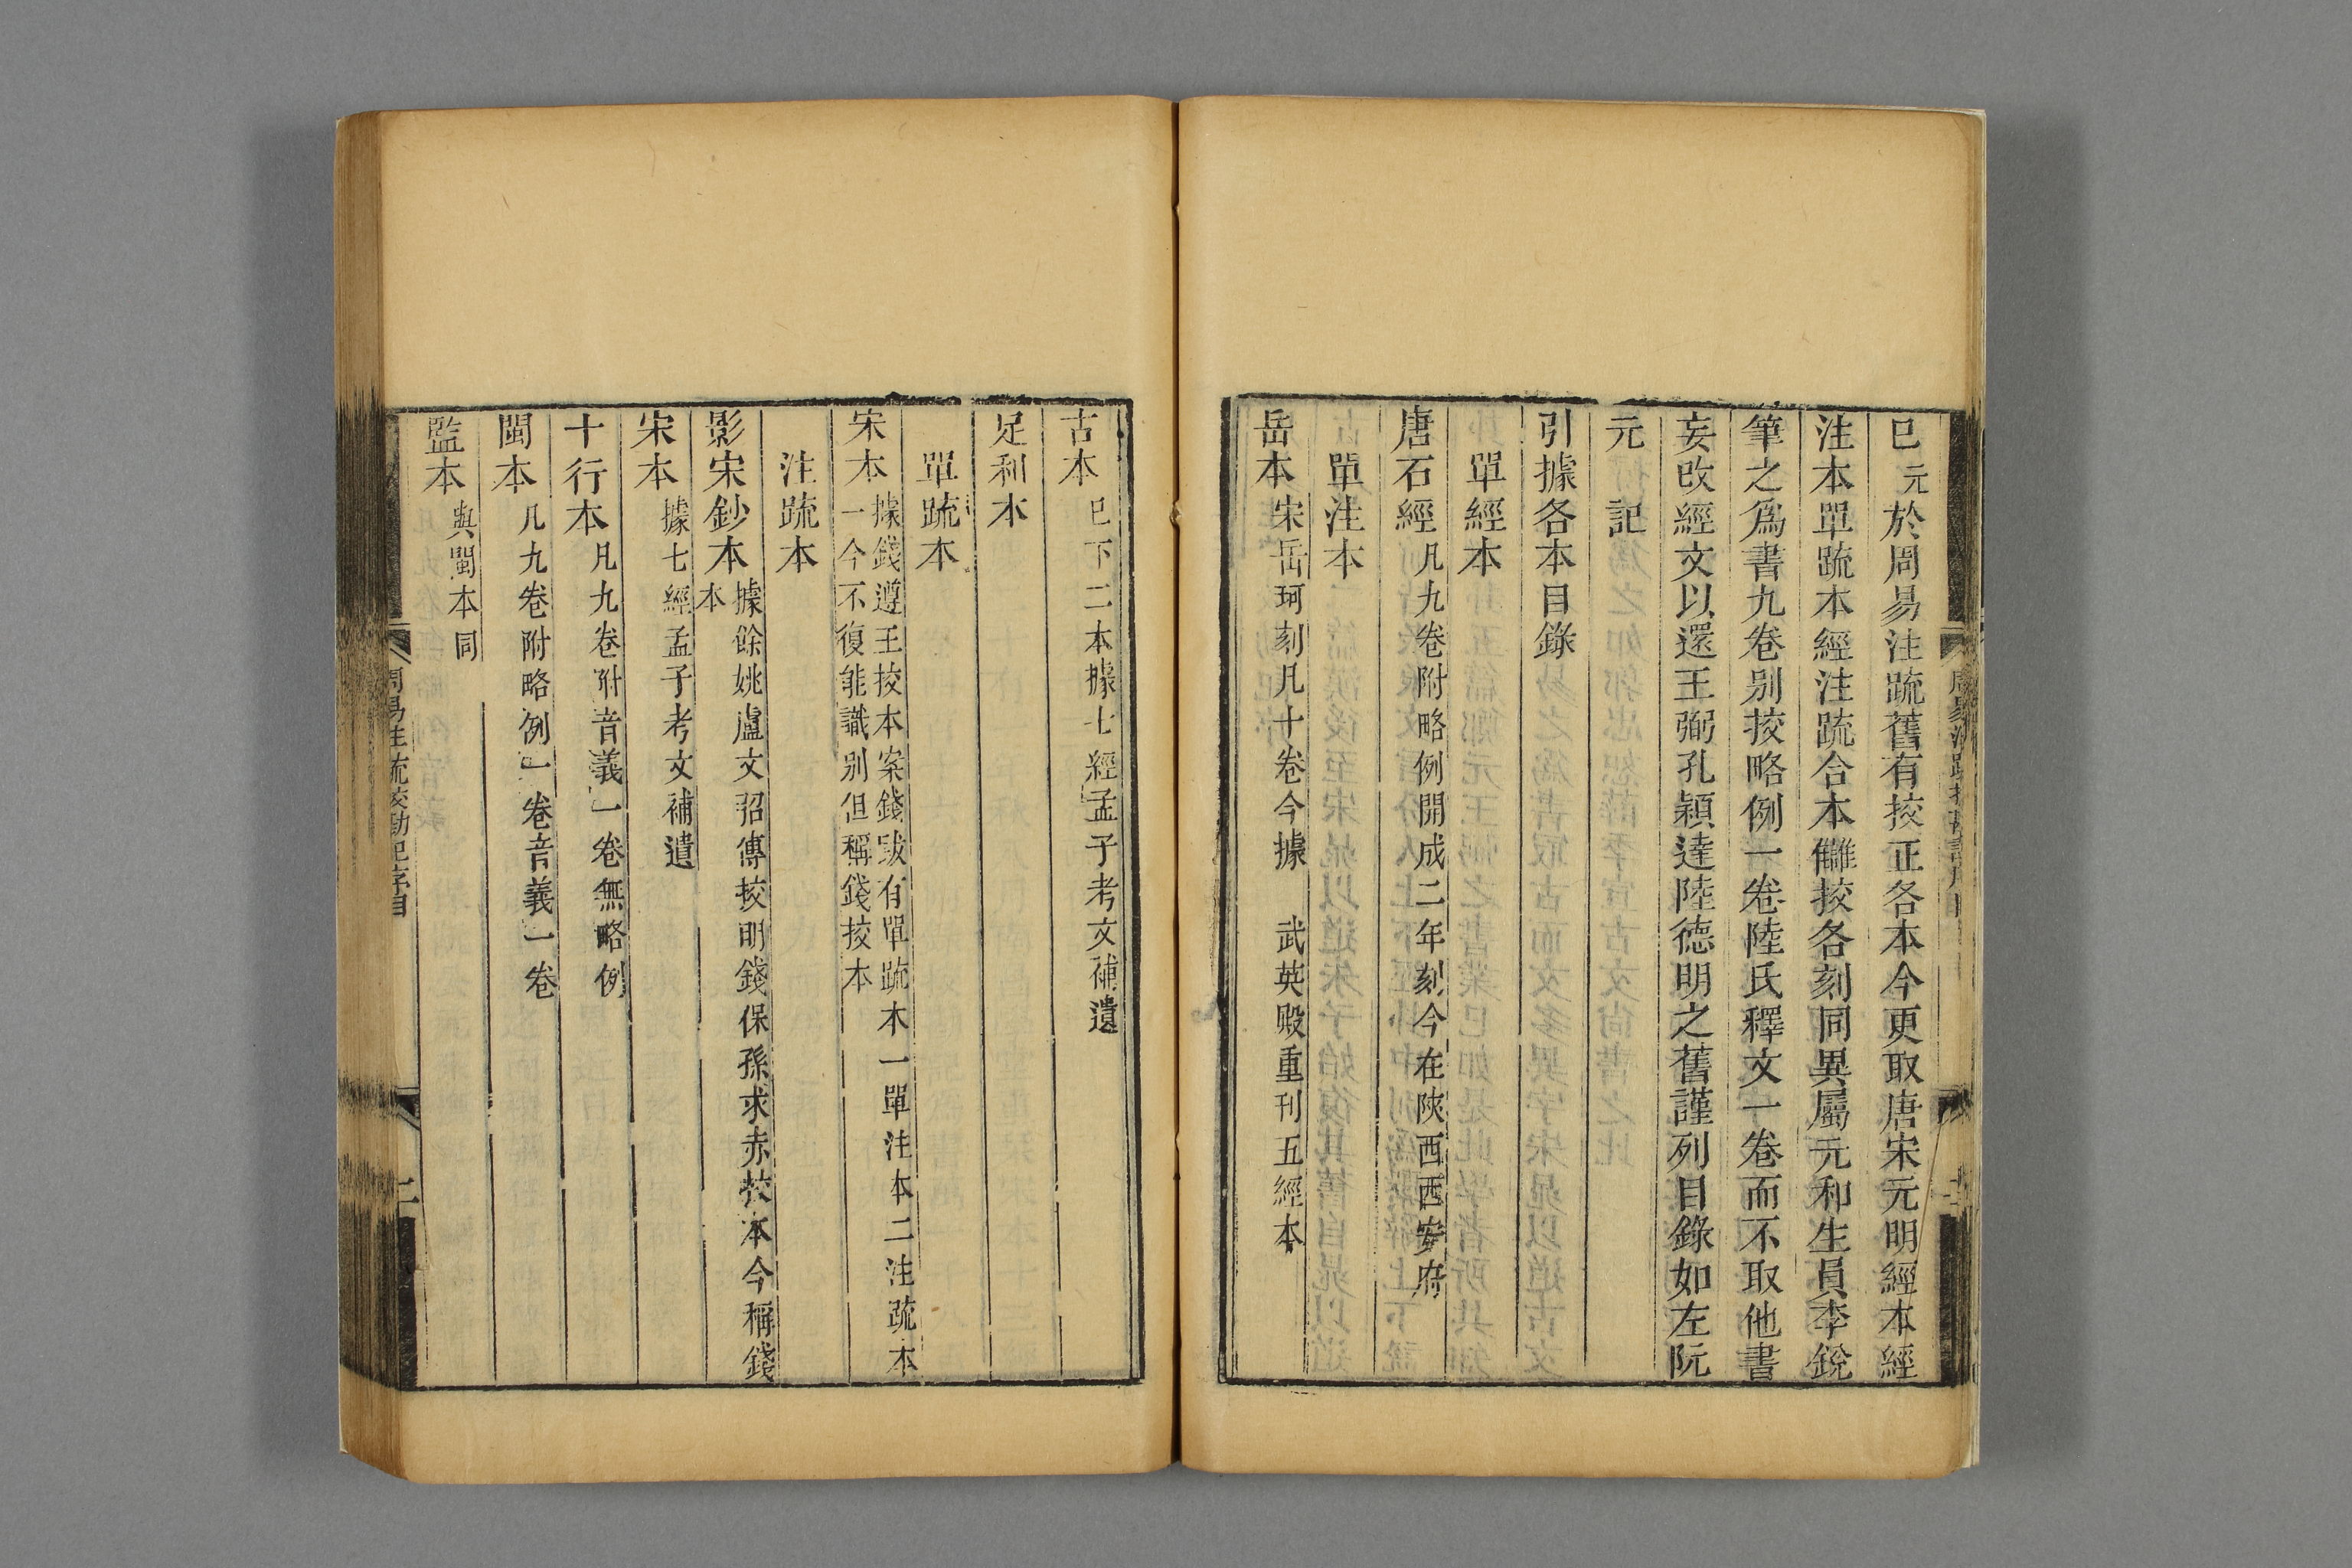 巳元於周易注疏舊有挍正各本今更取唐宋元明經本經
注本單疏本經注疏合本讎挍各刻同異屬元和生員李銳
筆之爲書九卷別挍略例一卷陸氏釋文一卷而不取他書
妄改經文以還王弼孔穎達陸德明之舊謹列目錄如左阮
元記
引據各本目錄
單經本
唐石經凡九卷附略例開成二年刻今在陝西西安府
單注本
岳本宋岳珂刻凡十卷今據 武英殿重刊五經本
古本巳下二本據七經孟子考文補遺
足利本
單疏本
宋本據錢遵王挍本案錢跋有單疏本一單注本二注疏本
一今不復能識別但稱錢挍本
注疏本
影宋鈔本據餘姚盧文弨傳挍明錢保孫求赤挍本今稱錢
本
宋本據七經孟子考文補遺
十行本凡九卷附音義一卷無略例
閩本凡九卷附略例一卷音義一卷
監本與閩本同
周易注疏挍勘記序目
二